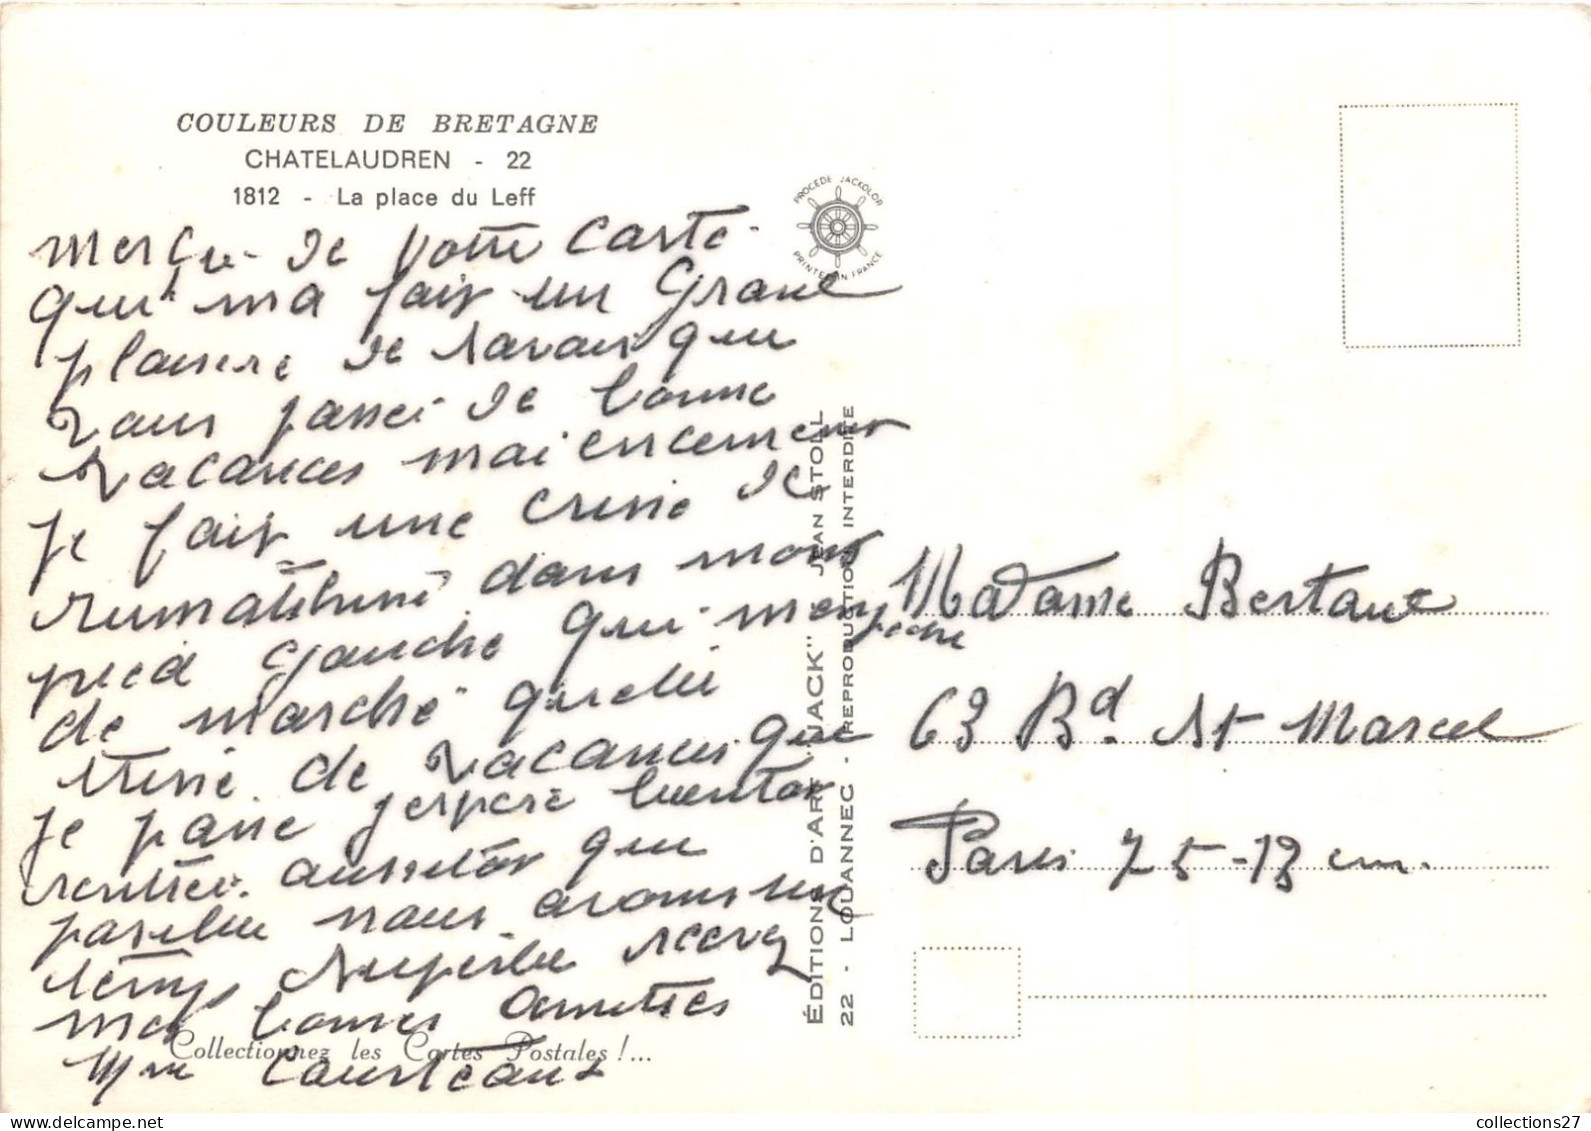 COULEURS DE BRETAGNE
CHATELAUDREN - 22
1812 - La place du Leff
merçie de votre carte
qui ma fait un Grand
plaisire de savair que
vous passé de bonne
vacances mai encement
je fait une crisie de
rumatisme dans mont
pied gauche qui m'enpeche
de marché quelle
trisse de vacances que
je passe j'espere bientot
rentree aussitot que
parelbu nous avons un
temps superbe recevez
mes bonnes amitiés
Mme Courteaux
Collectionnez les Cartes Postales !...
PROCEDE JACKOLOR
PRINTED IN FRANCE
ÉDITIONS D'ART "JACK" JEAN STOLL
22 - LOUANNEC - REPRODUCTION INTERDITE
Madame Bertaux
63 Bd. St Marcel
Paris 75-13 em.
collections27